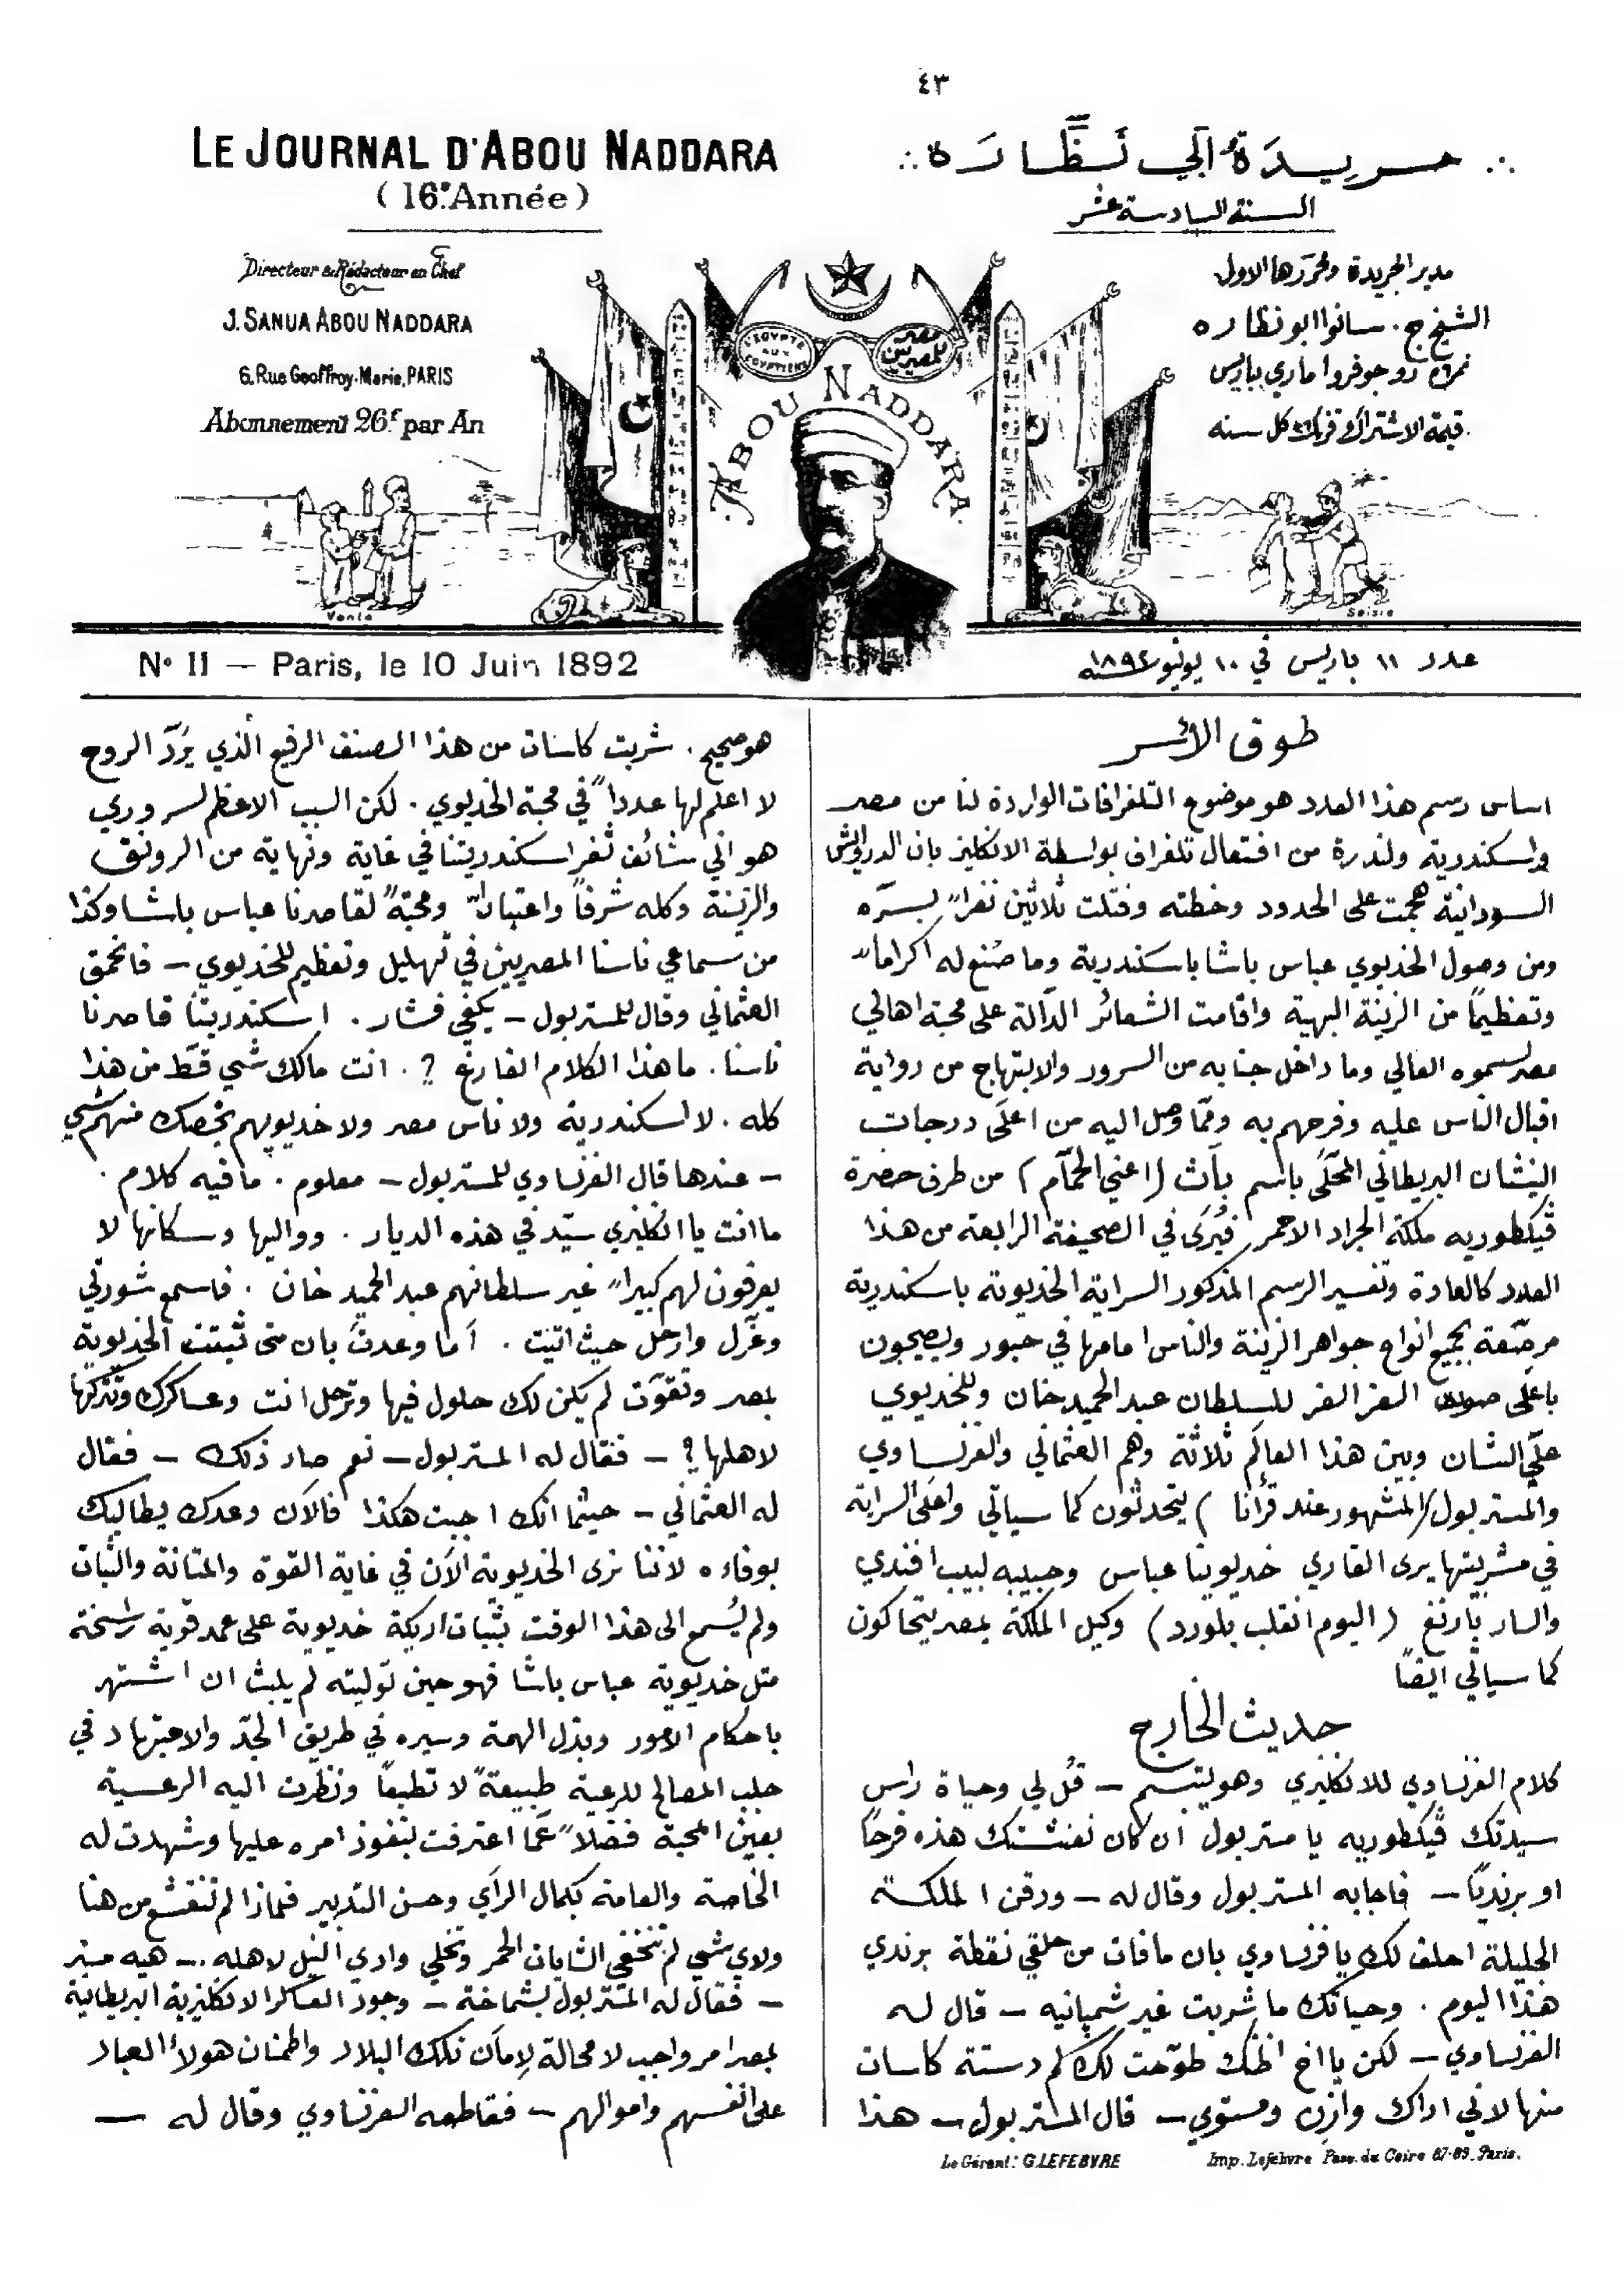 ٤٣
LE JOURNAL D'ABOU NADDARA
(16e Année)
Directeur & Rédacteur en Chef
J. SANUA ABOU NADDARA
6, Rue Geoffroy-Marie, PARIS
Abonnement 26f par An
جريدة ابي نظّارة
السنة السادسة عشر
مدير الجريدة ومحررها الاول
الشيخ ج. سانوا ابو نظاره
نمرة ٦ رو جوفروا ماري بباريس
قيمة الاشتراك ٢٦ فرنك كل سنه
L'EGYPTE AUX EGYPTIENS
مصر للمصريين
ABOU NADDARA
Vente
Saisie
No 11 — Paris, le 10 Juin 1892
عدد ١١ باريس في ١٠ يونيو سنة ١٨٩٢
طوق الاسر
اساس رسم هذا العدد هو موضوع التلغرافات الواردة لنا من مصر
واسكندرية ولندرة من افتعال تلغراف بواسطة الانكليز بان الدراويش
السودانية هجمت على الحدود وخطته وقتلت ثلاثين نفراً بسرّه
ومن وصول الخديوي عباس باشا باسكندرية وما صُنع له اكراماً
وتعظيماً من الزينة البهية واقامت الشعائر الدآلة على محبة اهالي
مصر لسموه العالي وما داخل جنابه من السرور والابتهاج من رواية
اقبال الناس عليه وفرحهم به وممّا وصل اليه من اعلَى درجات
النيشان البريطاني المحلَّى باسم بآث (اعني الحمّام) من طرف حضرة
ڤيكطوريه ملكة الجراد الاحمر فيُرَى في الصحيفة الرابعة من هذا
العدد كالعادة وتفسير الرسم المذكور السراية الخديوية باسكندرية
مرصّعة بجميع انواع جواهر الزينة والناس امامها في حبور ويصيحون
باعلَى صوت العز العز للسلطان عبد الحميد خان وللخديوي
عليّ الشان وبين هذا العالَم ثلاثة وهم العثماني والفرنساوي
والمستر بول (المشهور عند قرّانا) يتحدثون كما سياتي واعلَى السراية
في مشربيتها يرى القاري خديوينا عباس وحبيبه لبيب افندي
والسار بارنغ (اليوم انقلب بلورد) وكيل الملكة بمصر يتحاكون
كما سياتي ايضاً
حديث الخارج
كلام الفرنساوي للانكليزي وهو يتبسم — قُل لي وحياة راس
سيدتك ڤيكطوريه يا مستر بول ان كان نعنشتك هذه فرحاً
او برنديّا — فاجابه المستر بول وقال له — ودقن الملكة
الجليلة احلف لك يا فرنساوي بان ما فات من حلقي نقطة برندي
هذا اليوم . وحياتك ما شربت غير شمبانيه — قال له
الفرنساوي — لكن يا اخ اظنك طوّحت لك كم دستة كاسات
منها لاني اراك وازن ومستوي — قال المستر بول — هذا
هو صحيح . شربت كاسات من هذا الصنف الرفيع الذي يردّ الروح
لا اعلم لها عدداً في محبة الخديوي . لكن السبب الاعظم لسروري
هو اني شائف ثغر اسكندريتنا في غاية ونهاية من الرونق
والزينة وكله شرفاً واعتباراً ومحبةً لقاصدنا عباس باشا وكذا
من سماعي ناسنا المصريين في تهليل وتعظيم للخديوي — فانحمق
العثماني وقال للمستر بول — يكفي فشار . اسكندريتنا قاصدنا
ناسنا . ما هذا الكلام الفارغ ? . انت مالك شي قط من هذا
كله . لا اسكندرية ولا ناس مصر ولا خديويهم يخصك منهم شي
— عندها قال الفرنساوي للمستر بول — معلوم . ما فيه كلام .
ما انت يا انكليزي سيّد في هذه الديار . وواليها وسكانها لا
يعرفون لهم كبيراً غير سلطانهم عبد الحميد خان . فاسمع شورتي
وعزّل وارحل حيث اتيت . أما وعدتَ بان متى ثبتت الخديوية
بمصر وتقوّت لم يكن لك حلول فيها وترحل انت وعساكرك وتتركها
لاهلها ? — فقال له المستر بول — نعم صار ذلك — فقال
له العثماني — حيثما انك اجبت هكذا فالآن وعدك يطالبك
بوفاءه لاننا نرى الخديوية الآن في غاية القوة والمتانة والثبات
ولم يُسمع الى هذا الوقت بثبات اريكة خديوية على عمد قوية راسخة
مثل خديوية عباس باشا فهو حين توليته لم يلبث ان اشتهر
باحكام الامور وبذل الهمة وسيره في طريق الجدّ والاجتهاد في
جلب المصالح للرعية طبيعةً لا تطبعاً ونظرت اليه الرعية
بعين المحبة فضلاً عمّا اعترفت بنفوذ امره عليها وشهدت له
الخاصة والعامة بكمال الرأي وحسن التدبير فماذا لم تنقشع من هنا
ولاي شي لم تختفي الثيابان الحمر وتخلي وادي النيل لاهله . — هيه مستر
— فقال له المستر بول بشماخة — وجود العساكر الانكليزية البريطانية
بمصر امر واجب لا محالة لإمآن تلك البلاد واطمنان هولاء العباد
على انفسهم واموالهم — فقاطعه الفرنساوي وقال له —
Le Gérant: G. LEFEBVRE
Imp. Lefebvre Pass. du Caire 87-89. Paris.